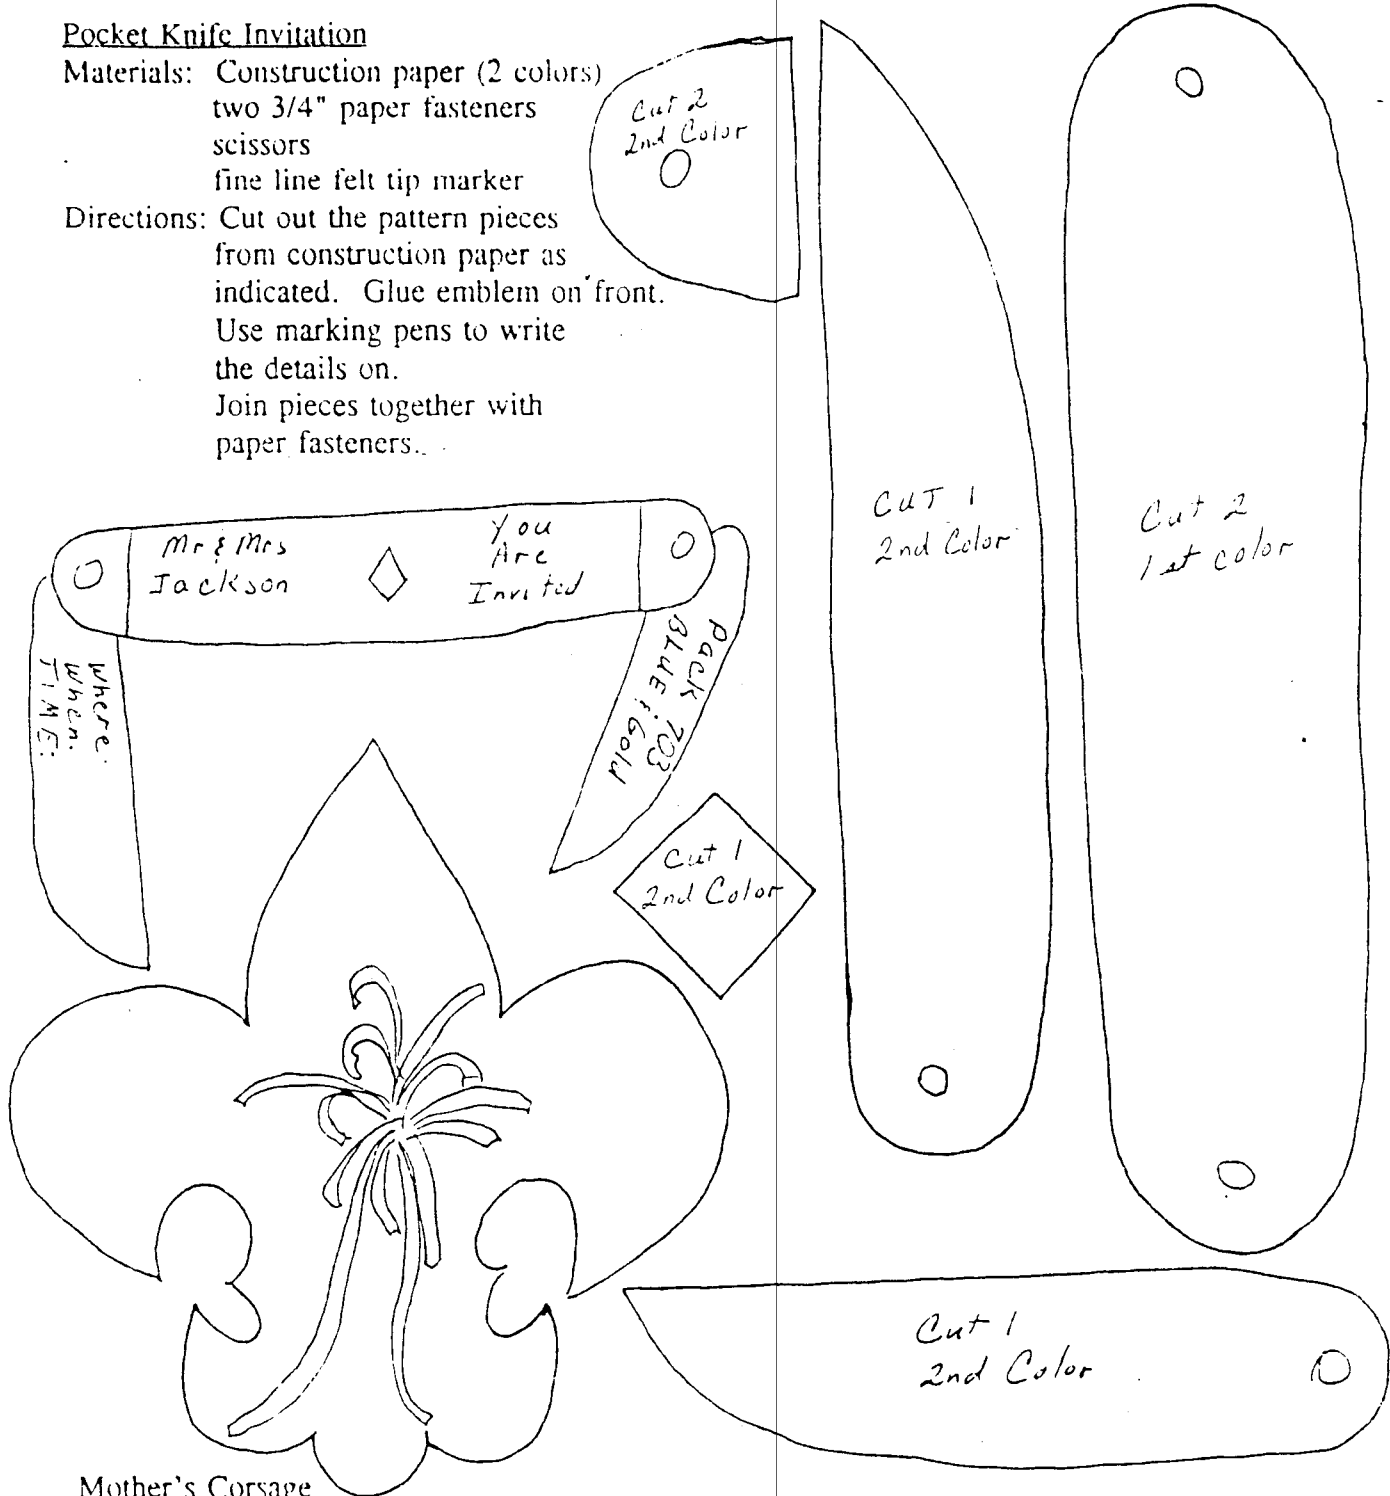 Pocket Knife Invitation
Materials: Construction paper (2 colors)
two 3/4" paper fasteners
scissors
fine line felt tip marker
Directions: Cut out the pattern pieces
from construction paper as
indicated. Glue emblem on front.
Use marking pens to write
the details on.
Join pieces together with
paper fasteners.
Cut 2
2nd Color
CUT 1
2nd Color
Cut 2
1st color
Mr & Mrs
Jackson
You
Are
Invited
Where:
When:
TIME:
Pack 703
BLUE & Gold
Cut 1
2nd Color
Cut 1
2nd Color
Mother's Corsage